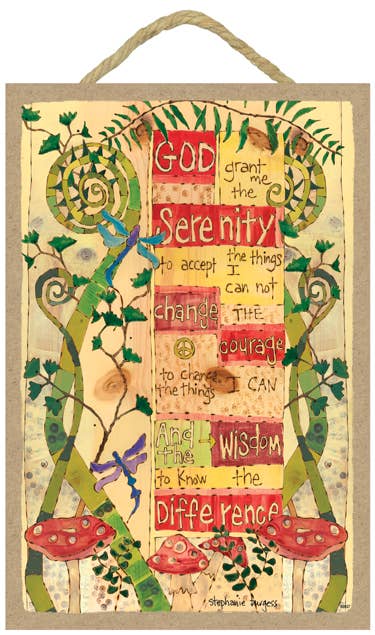 GOD
grant
me
the
Serenity
to accept the things
I
can not
change THE
courage
to change
the things I CAN
And
the Wisdom
to Know the
Difference
stephanie burgess